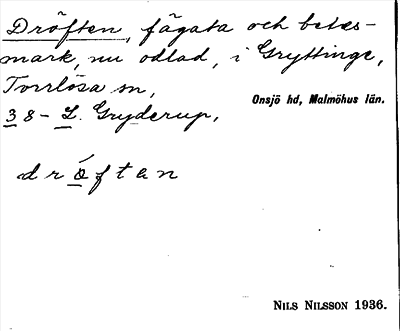 Dröften, fägata och betes-
mark, nu odlad, i Gryttinge,
Torrlösa sn,
Onsjö hd, Malmöhus län.
38- L. Gryderup,
dröften
NILS NILSSON 1936.